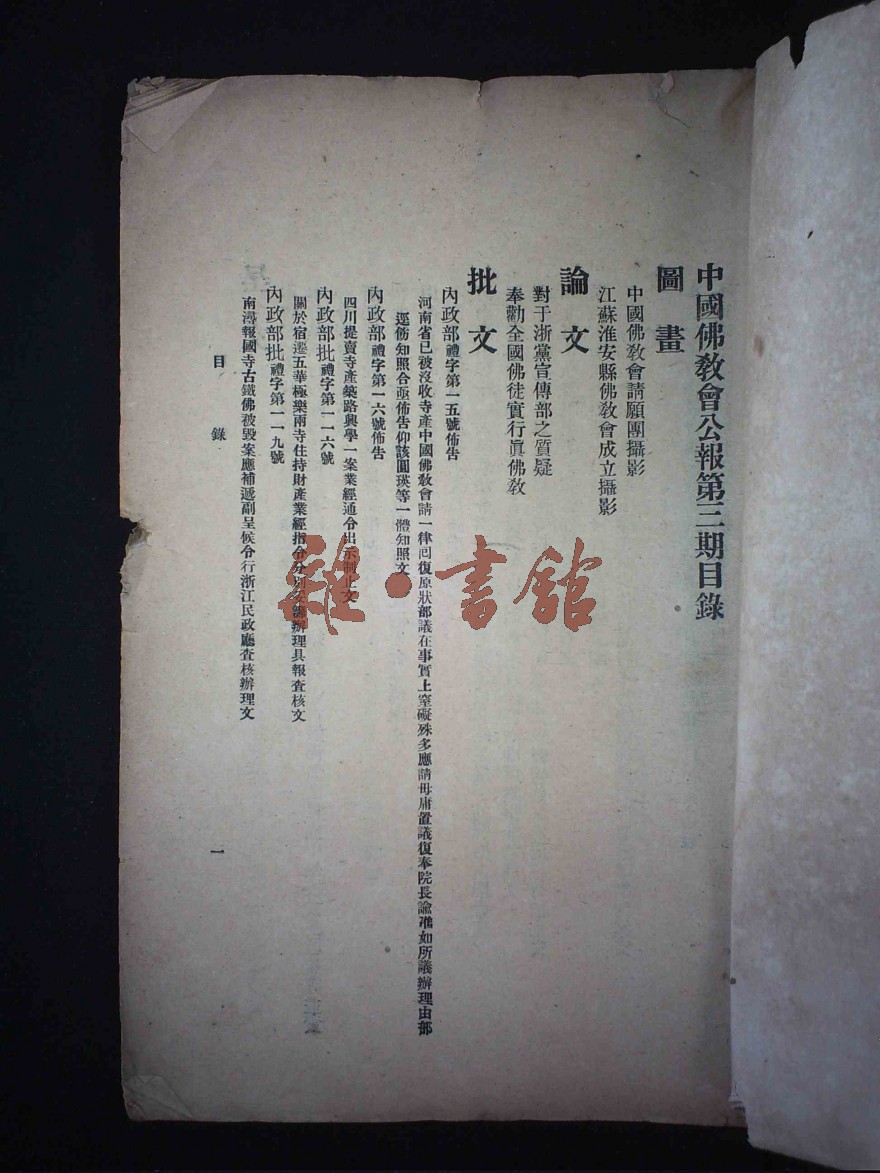 中國佛教會公報第三期目錄
圖畫
中國佛教會請願團攝影
江蘇淮安縣佛教會成立攝影
論文
對于浙黨宣傳部之質疑
奉勸全國佛徒實行眞佛教
批文
內政部禮字第一五號佈告
河南省已被沒收寺產中國佛教會請一律囘復原狀部議在事實上窒礙殊多應請毋庸置議復奉院長諭准如所議辦理由部
逕飭知照合亟佈告仰該圓瑛等一體知照文
內政部禮字第一六號佈告
四川提賣寺產築路興學一案業經通令出示制止文
內政部批禮字第一一六號
關於宿遷五華極樂兩寺住持財產業經指令分別辦理具報查核文
內政部批禮字第一一九號
南潯報國寺古鐵佛被毀案應補遞副呈候令行浙江民政廳查核辦理文
目錄
一
雜·書館